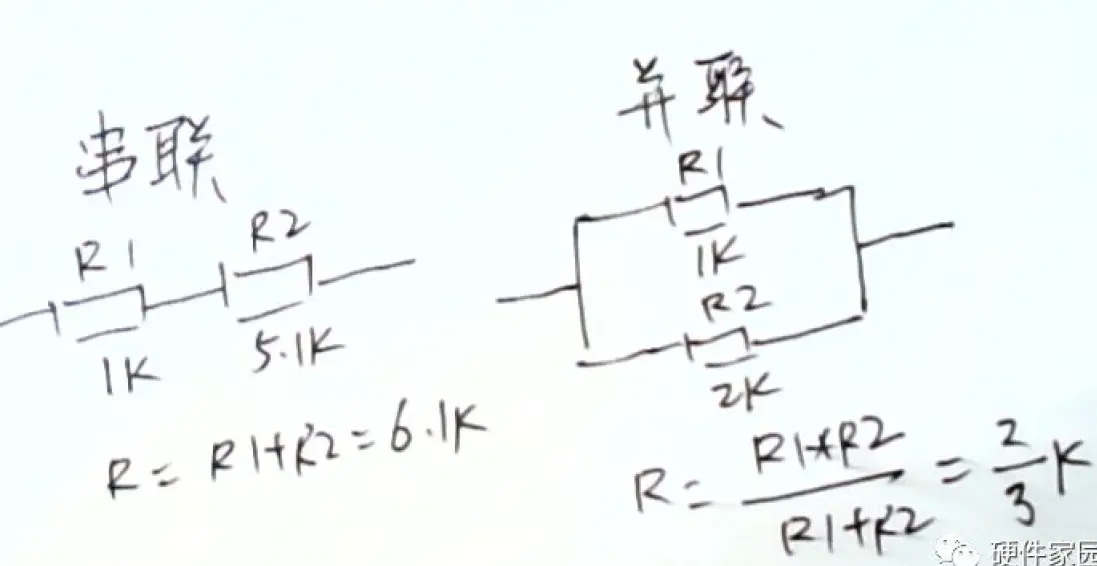 串联
R1
R2
1K
5.1K
R = R1+R2 = 6.1K
并联
R1
1K
R2
2K
R = R1*R2 / R1+R2 = 2/3 K
硬件家园